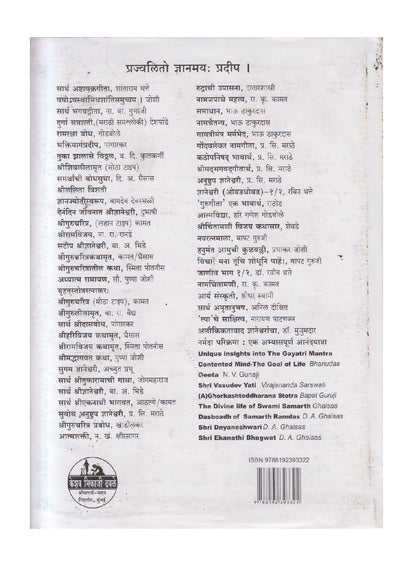 प्रज्वलितो ज्ञानमयः प्रदीप ।
सार्थ अष्टावक्रगीता, शांताराम थत्ते
वयोऽवस्थाभिधशांतिसमुच्चय । जोशी
सार्थ भगवद्गीता, ना. वा. गुणाजी
दुर्गा सप्तशती,(मराठी समश्लोकी) देशपांडे
रामरक्षा बोध, गोडबोले
भक्तिमार्गप्रदीप, पांगारकर
तुका झालासे विठ्ठल, व. दि. कुलकर्णी
श्रीशिवलीलामृत (मोठा टाइप)
समर्थांची बोधसुधा, दि. अ. घैसास
श्रीललिता त्रिशती
ज्ञानज्योतीस्वरूप, वामदेव देवस्थळी
दैनंदिन जीवनात श्रीज्ञानेश्वरी, दुभाषी
श्रीगुरुचरित्र, (लहान टाइप) कामत
श्रीरामविजय, गा. रा. रानडे
सटीप श्रीज्ञानेश्वरी, बा. अ. भिडे
श्रीगुरुचरित्रकथामृत, कामत/घैसास
श्रीगुरुचरित्रातील कथा, स्मिता पोतनीस
अध्यात्म रामायण, सौ. पुष्पा जोशी
बृहत्स्तोत्ररत्नाकरः
श्रीगुरुचरित्र (मोठा टाइप), कामत
श्रीगुरुलीलामृत, बा. रा. वैद्य
सार्थ श्रीदासबोध, पांगारकर
श्रीहरिविजय कथामृत, घैसास
श्रीरामविजय कथामृत, स्मिता पोतनीस
श्रीमद्भागवत कथा, पुष्पा जोशी
सुगम ज्ञानेश्वरी, अच्युत प्रभू
सार्थ श्रीतुकारामाची गाथा, जोगमहाराज
सार्थ श्रीज्ञानेश्वरी, बा. अ. भिडे
सार्थ श्रीएकनाथी भागवत, आठाणे/कामत
सुबोध अनुष्टुप ज्ञानेश्वरी, प्र. सि. मराठे
श्रीगुरुचरित्र प्रबोध, खाडीलकर
आत्मशक्ती, न. खं. क्षीरसागर
रुद्राची उपासना, दातारशास्त्री
नामजपाचे महत्त्व, रा. कृ. कामत
समाधान, भाऊ ठाकुरदास
नामचैतन्य, भाऊ ठाकुरदास
गायत्रीमंत्र मर्मभेद, भाऊ ठाकुरदास
गोंदवलेकर नामगीता, प्र. सि. मराठे
कठोपनिषद् भावार्थ, प्र. सि. मराठे
श्रीमद्भगवद्गीतार्थ, प्र. सि. मराठे
अनुष्टुप ज्ञानेश्वरी, प्र. सि. मराठे
ज्ञानेश्वरी (ओवयोध)-१/२, रविन थत्ते
'गुरुगीता' एक भावार्थ, राठोड
आत्मविद्या, हरि गणेश गोडबोले
श्रीचिंतामणी विजय कथासार, शेवडे
नवरत्नमाला, बापट गुरुजी
हनुमंत आमुची कुळवल्ली, प्रभाकर जोशी
विचारें मना तूंचि शोधूनि पाहें।, बापट गुरुजी
जाणीव भाग १/२, डॉ. रवीन थत्ते
नामचिंतामणी, रा. कृ. कामत
आर्य संस्कृती, श्रीधर स्वामी
सार्थ अमृतानुभव, अनिल दीक्षित
'त्या'चे साक्षित्व, नारायण पाटणकर
अलौकिकतावाद ज्ञानेश्वरांचा, डॉ. मुजुमदार
नर्मदा परिक्रमा : एक अभ्यासपूर्ण आनंदयात्रा
Unique Insights into The Gayatri Mantra
Contented Mind-The Goal of Life Bhanudas
Geeta N. V. Gunaji
Shri Vasudev Yati Virajananda Sarswati
(A)Ghorkashtoddharana Stotra Bapat Guruji
The Divine life of Swami Samarth Ghaisas
Dasboadh of Samarth Ramdas D. A. Ghaisas
Shri Dnyaneshwari D. A. Ghaisas
Shri Ekanathi Bhagwat D. A. Ghaisas
ISBN 9788192393322
9 788192 393322
केशव भिकाजी ढवळे
श्रीसमर्थ-सदन
गिरगांव, मुंबई